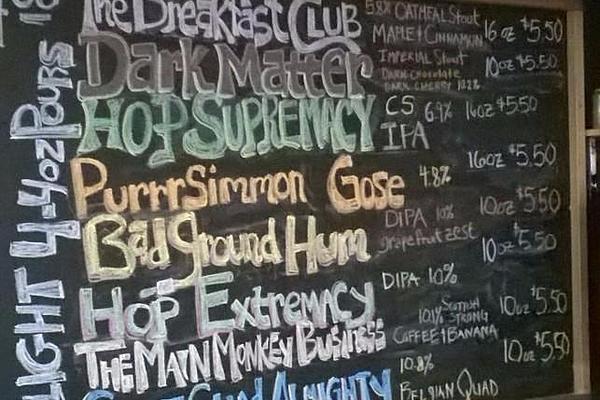 The Breakfast Club 5.8% OATMEAL Stout MAPLE + CINNAMON 16 oz $5.50
Dark Matter IMPERIAL Stout DARK CHOCOLATE DARK CHERRY 10oz $5.50
HOP SUPREMACY CS IPA 6.9% 16oz $5.50
PurrrSimmon Gose 4.8% 16oz $5.50
Bad Ground Hum DIPA 10% grapefruit zest 10oz $5.50
Hop Extremacy DIPA 10% 10oz $5.50
THE MAIN MONKEY BUSINESS 10.1% SCOTTISH STRONG COFFEE + BANANA 10oz $5.50
ALMIGHTY 10.8% BELGIAN QUAD 10oz $5.50
4-4oz Pours